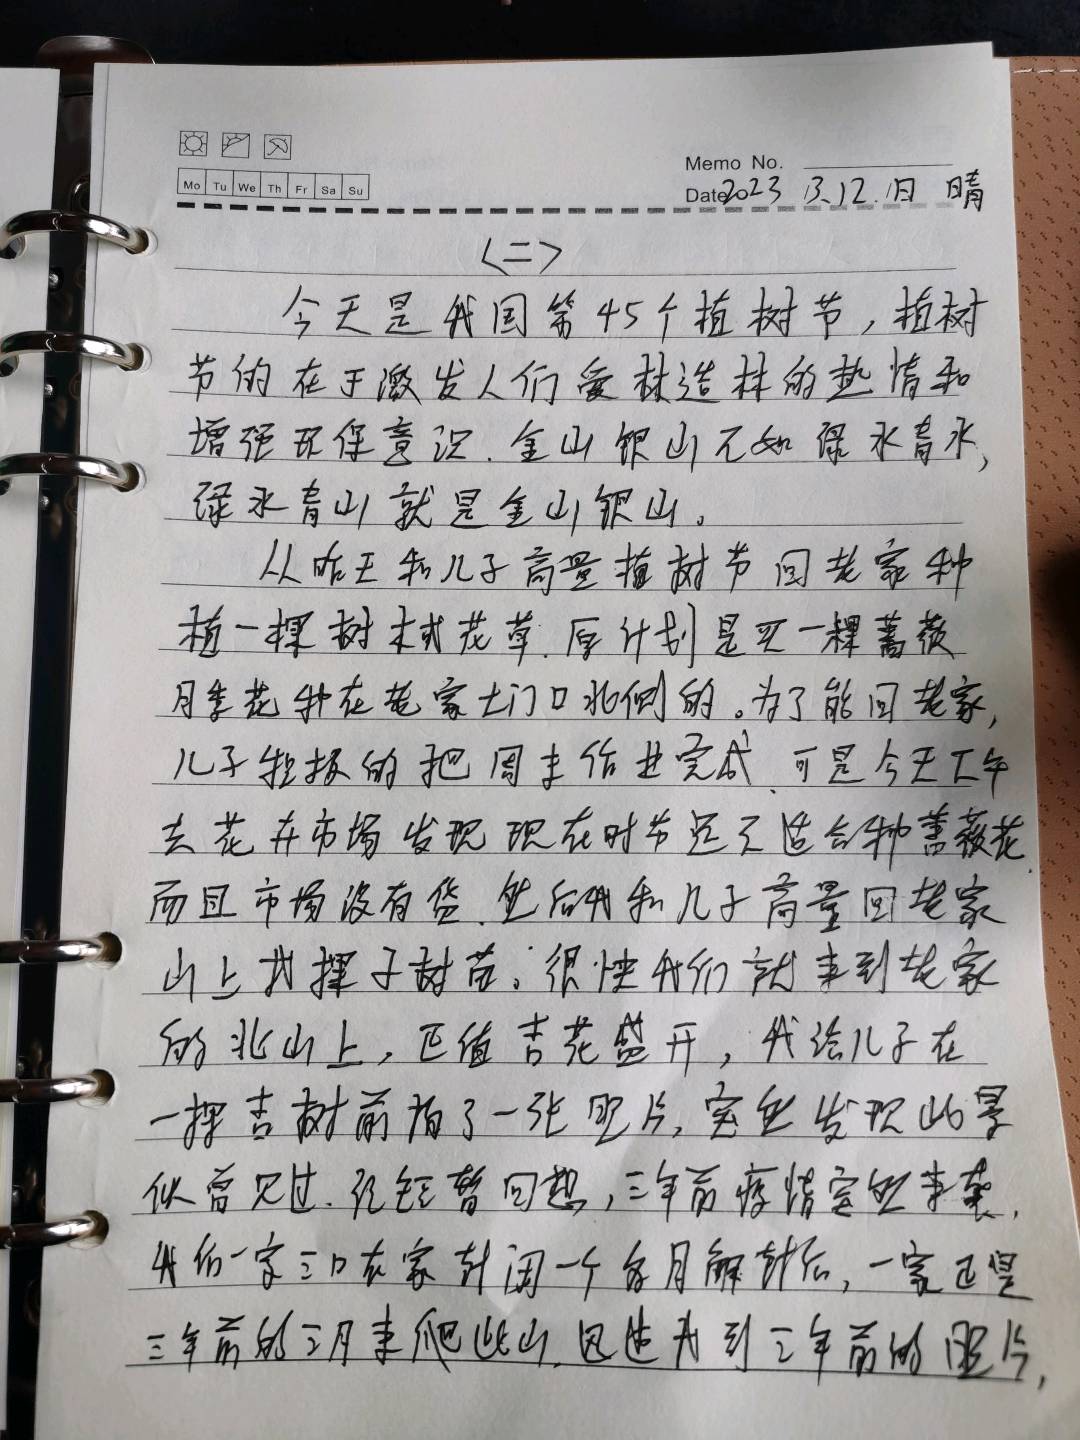 Memo No.
Mo Tu We Th Fr Sa Su
Date 2023 3.12.日 晴
〈二〉
今天是我国第45个植树节，植树
节的在于激发人们爱林造林的热情和
增强环保意识.金山银山不如绿水青水，
绿水青山就是金山银山。
从昨天和儿子商量植树节回老家种
植一棵树木或花草.原计划是买一棵蔷薇
月季花种在老家大门口北侧的。为了能回老家，
儿子积极的把周末作业完成.可是今天上午
去花卉市场发现现在时节还不适合种蔷薇花.
而且市场没有货.然后我和儿子商量回老家
山上找揮子树苗。很快我们就来到老家
的北山上，正值杏花盛开，我给儿子在
一棵杏树前拍了一张照片，突然发现此景
似曾见过.短暂回想，三年前疫情突然来袭，
我们一家三口在家封闭一个多月解封后，一家正是
三年前的三月来爬此山.迅速找到三年前的照片，